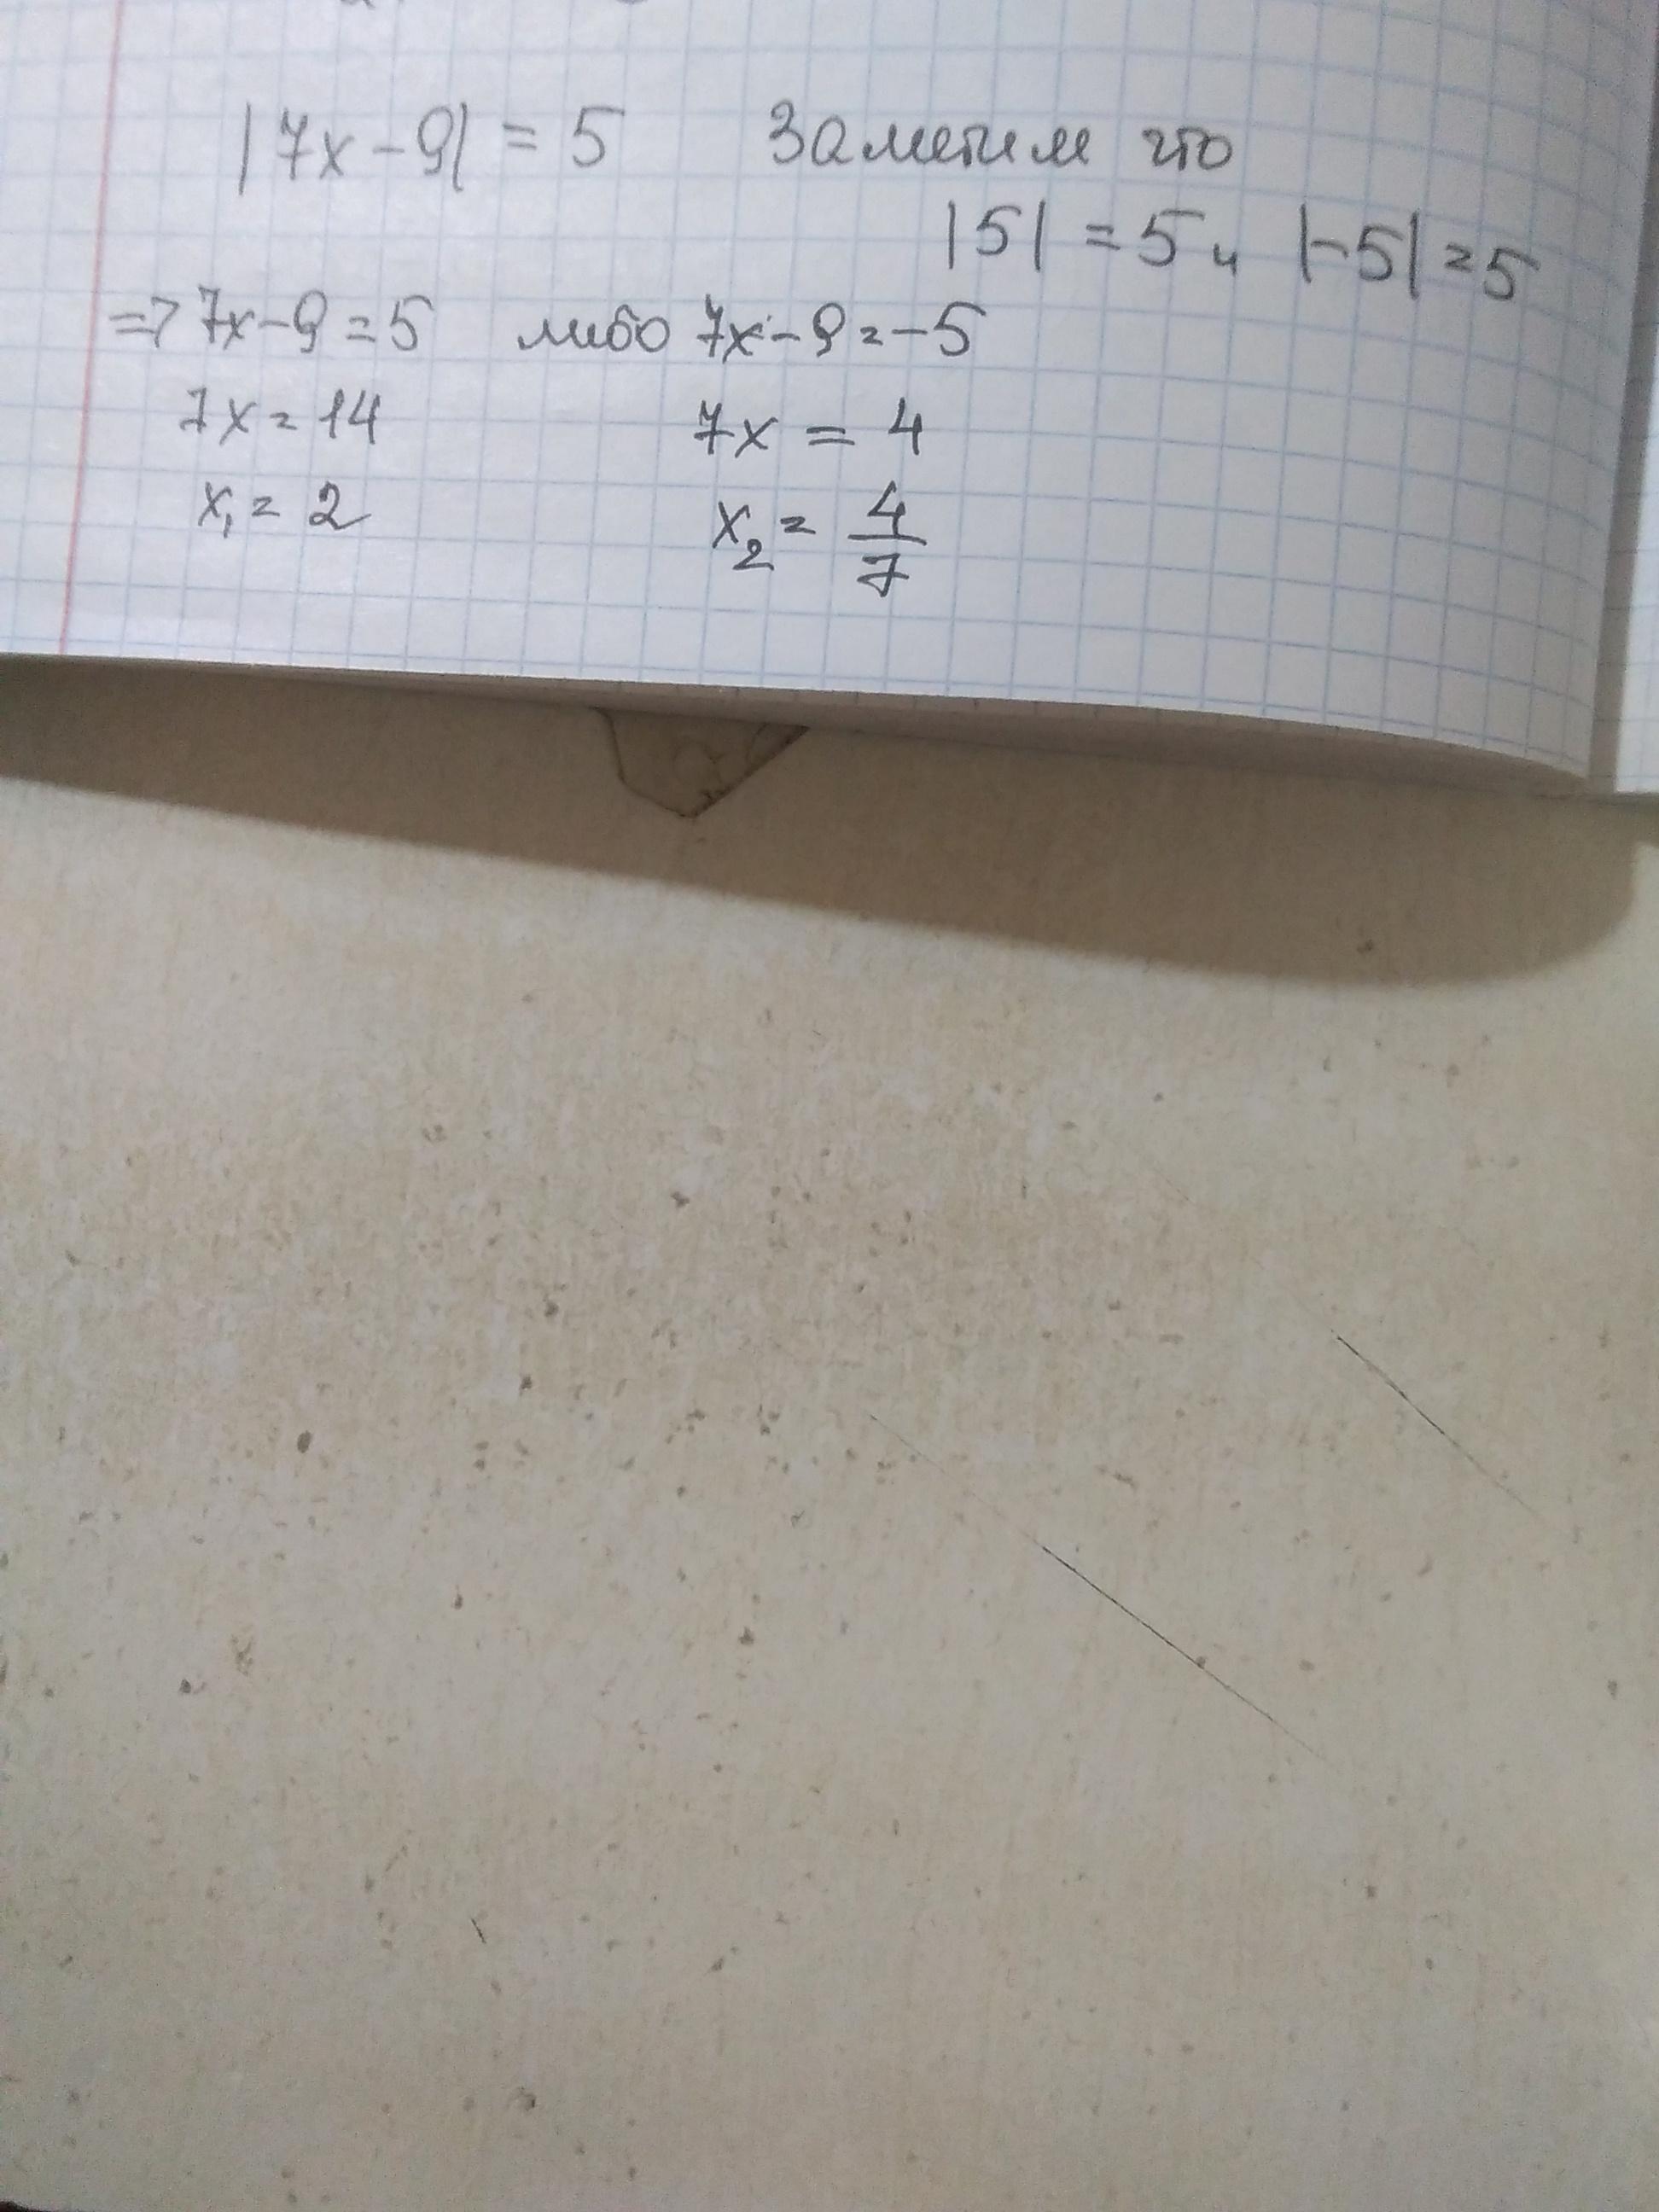 |7x-9| = 5 Заметим что
|5| = 5 и |-5| = 5
=> 7x-9=5 либо 7x-9=-5
7x=14 7x = 4
x₁= 2 x₂= 4/7